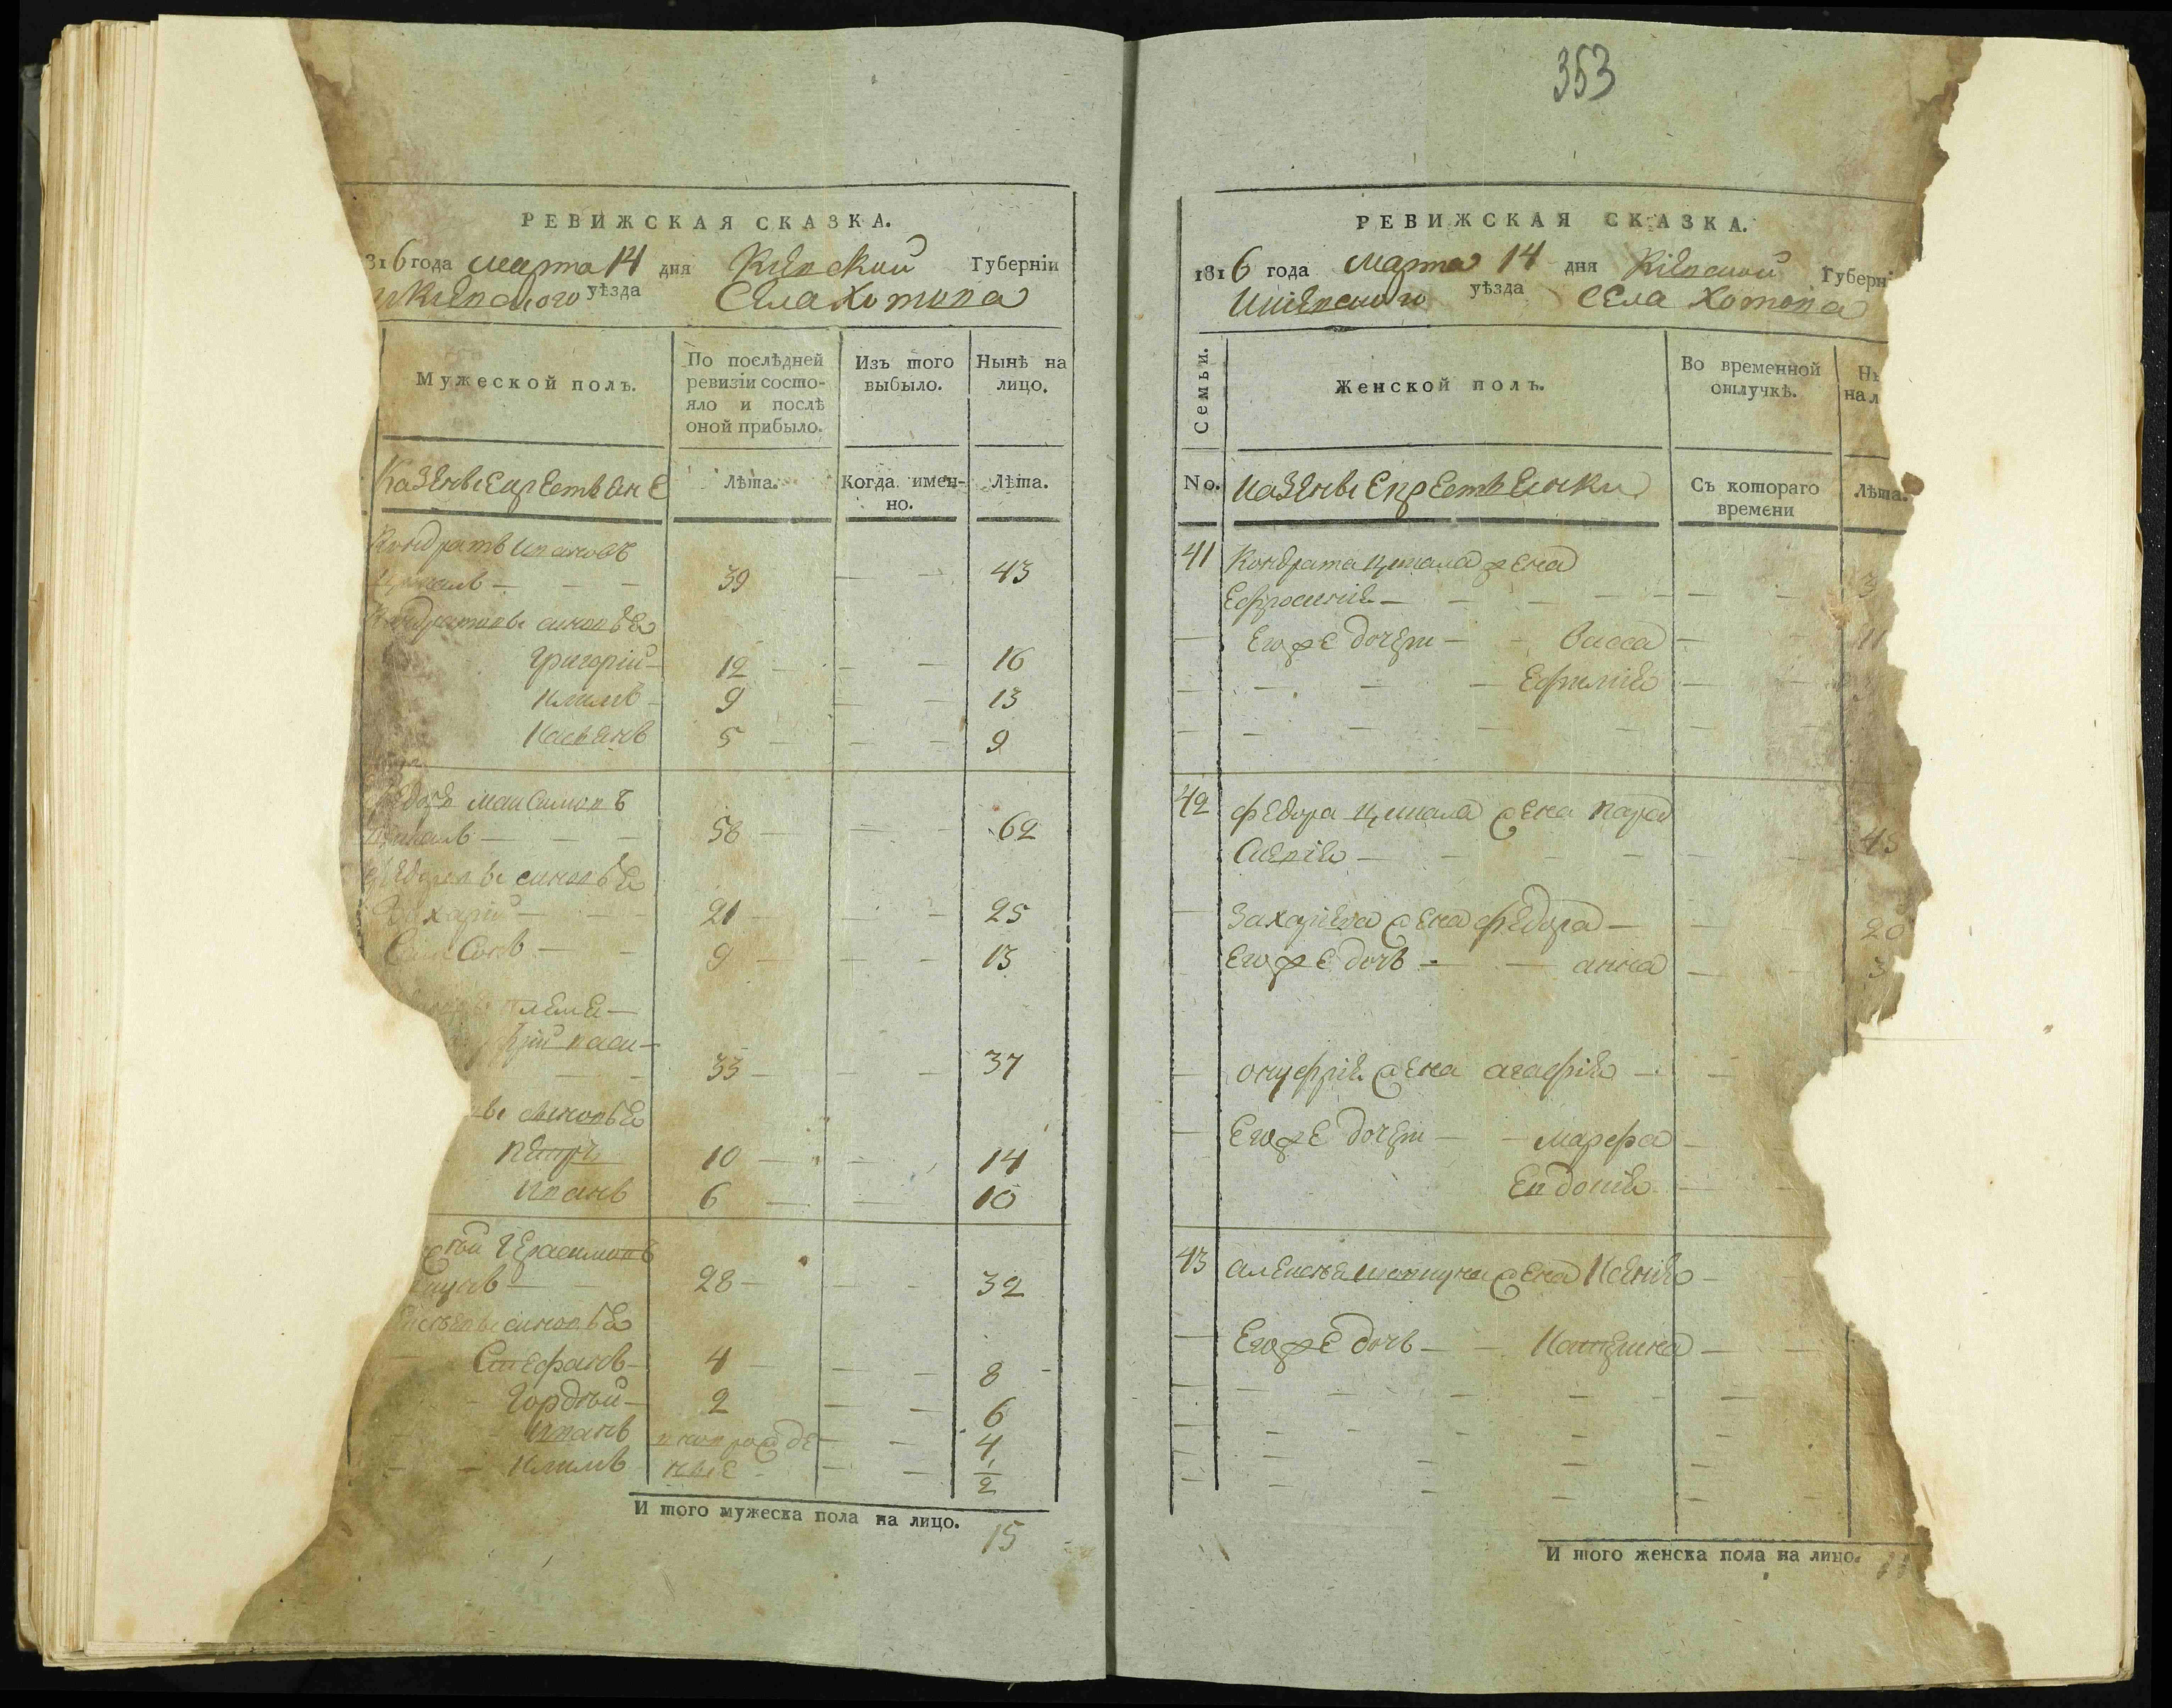 РЕВИЖСКАЯ СКАЗКА.
316 года марта 14 дня Кіевской Губерніи
иКіевского уѣзда Села Хотова
Мужеской полъ.
По послѣдней ревизіи состо-
яло и послѣ
оной прибыло.
Изъ того
выбыло.
Нынѣ на
лицо.
Казенные крестьяне
Лѣта.
Когда имен-
но.
Лѣта.
Кондратъ ивановъ
39 — — 43
Кондратовы сыновья
Григорій 12 — — 16
Климъ 9 — — 13
Касьянъ 5 — — 9
Максимовъ
58 — — 62
Федоровы сыновья
Захарій 21 — — 25
Самсонъ 9 — — 13
33 — — 37
вы сыновья
Петръ 10 — — 14
Иванъ 6 — — 10
Герасимовъ
28 — — 32
сыновья
Стефанъ 4 — — 8
Гордѣй 2 — — 6
Иванъ вноворожде — — 4
Климъ ные — — 1/2
И того мужеска пола на лицо. 15
353
РЕВИЖСКАЯ СКАЗКА.
1816 года марта 14 дня Кіевской Губерні
Икіевского уѣзда Села Хотова
Семьи.
Женской полъ.
Во временной
отлучкѣ.
Нъ
на л
No.
Казенные крестьянки
Съ котораго
времени
Лѣта.
41 Кондрата цикала жена
Ефросинія — — 3
Его же дочери — Васса — 11
Ефимія
42 Федора цикала жена Парас
кевія — — 45
Захаріева жена Федора — 20
Его же дочь — анна — 3
онуфрія жена агафія —
Его же дочери — марфа —
Евдокія
43 алексея шевчука жена Ксенія —
Его же дочь — Катерина —
И того женска пола на лицо. 11